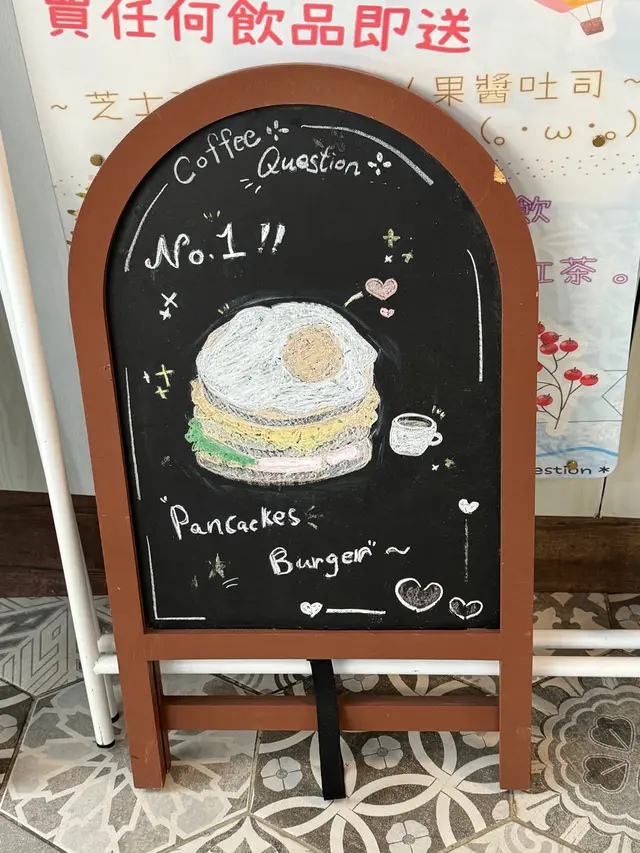 買任何飲品即送
~ 芝士
果醬吐司 ~
(｡･ω･｡)
飲
紅茶。
estion *
Coffee
Question
No.1 !!
"Pancackes
Burger" ~